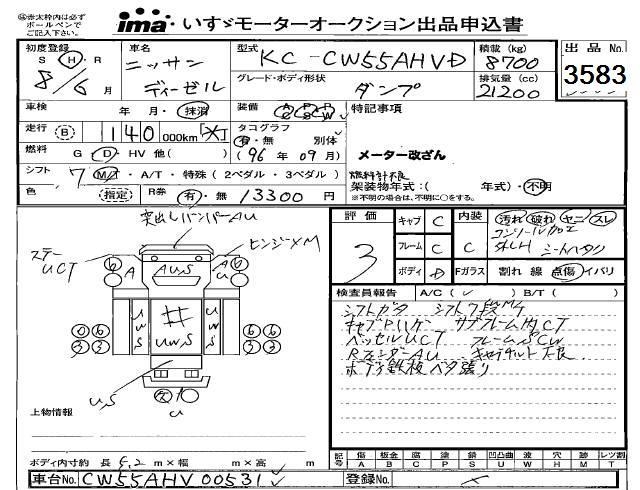 ㊟赤太枠内は必ず
ボールペンで
ご記入下さい。
ima いすゞモーターオークション出品申込書
初度登録 S H R 8/6 月
車名 ニッサン ディーゼル
型式 KC-CW55AHVD
積載 (kg) 8700
出品No. 3583
グレード・ボディ形状 ダンプ
排気量 (cc) 21200
車検 年・月・抹消
装備 A/C P/S P/W
特記事項
走行 B 140 000km
タコグラフ 有・無 別体
(96 年 09 月)
メーター改ざん
燃料 G D・HV 他( )
燃料計不良
シフト 7 M/T・A/T・特殊 (2ペダル・3ペダル)
架装物年式:( 年式)・不明
※不明の場合は、不明に○をする。
色 指定 R券 有・無 13300 円
突出しバンパーAU
ステー UCT
ヒンジXM
A AUS A AU
UWS # UWS UWS
US U
評価 3
キャブ C 内装 汚れ 破れ ヤニ スレ
フレーム C C 外LH シートヘタリ
ボディ D Fガラス 割れ 線 点傷 イバリ
検査員報告 A/C ( ✓ ) B/T ( )
シフトガタ シフト7段
サブフレーム内CT
ベッセルUCT フレームSCW
RフェンダーAU キャブチルト不良
ボディ鉄板ベタ張り
上物情報
ボディ内寸約 長 5.2 m×幅 m×高 m
記号 傷 A 板金 B 腐 C 塗 P 錆 S 凹凸曲 U 波 W 穴 H 跡 M レツ割 T
車台No. CW55AHV 00531
登録No.